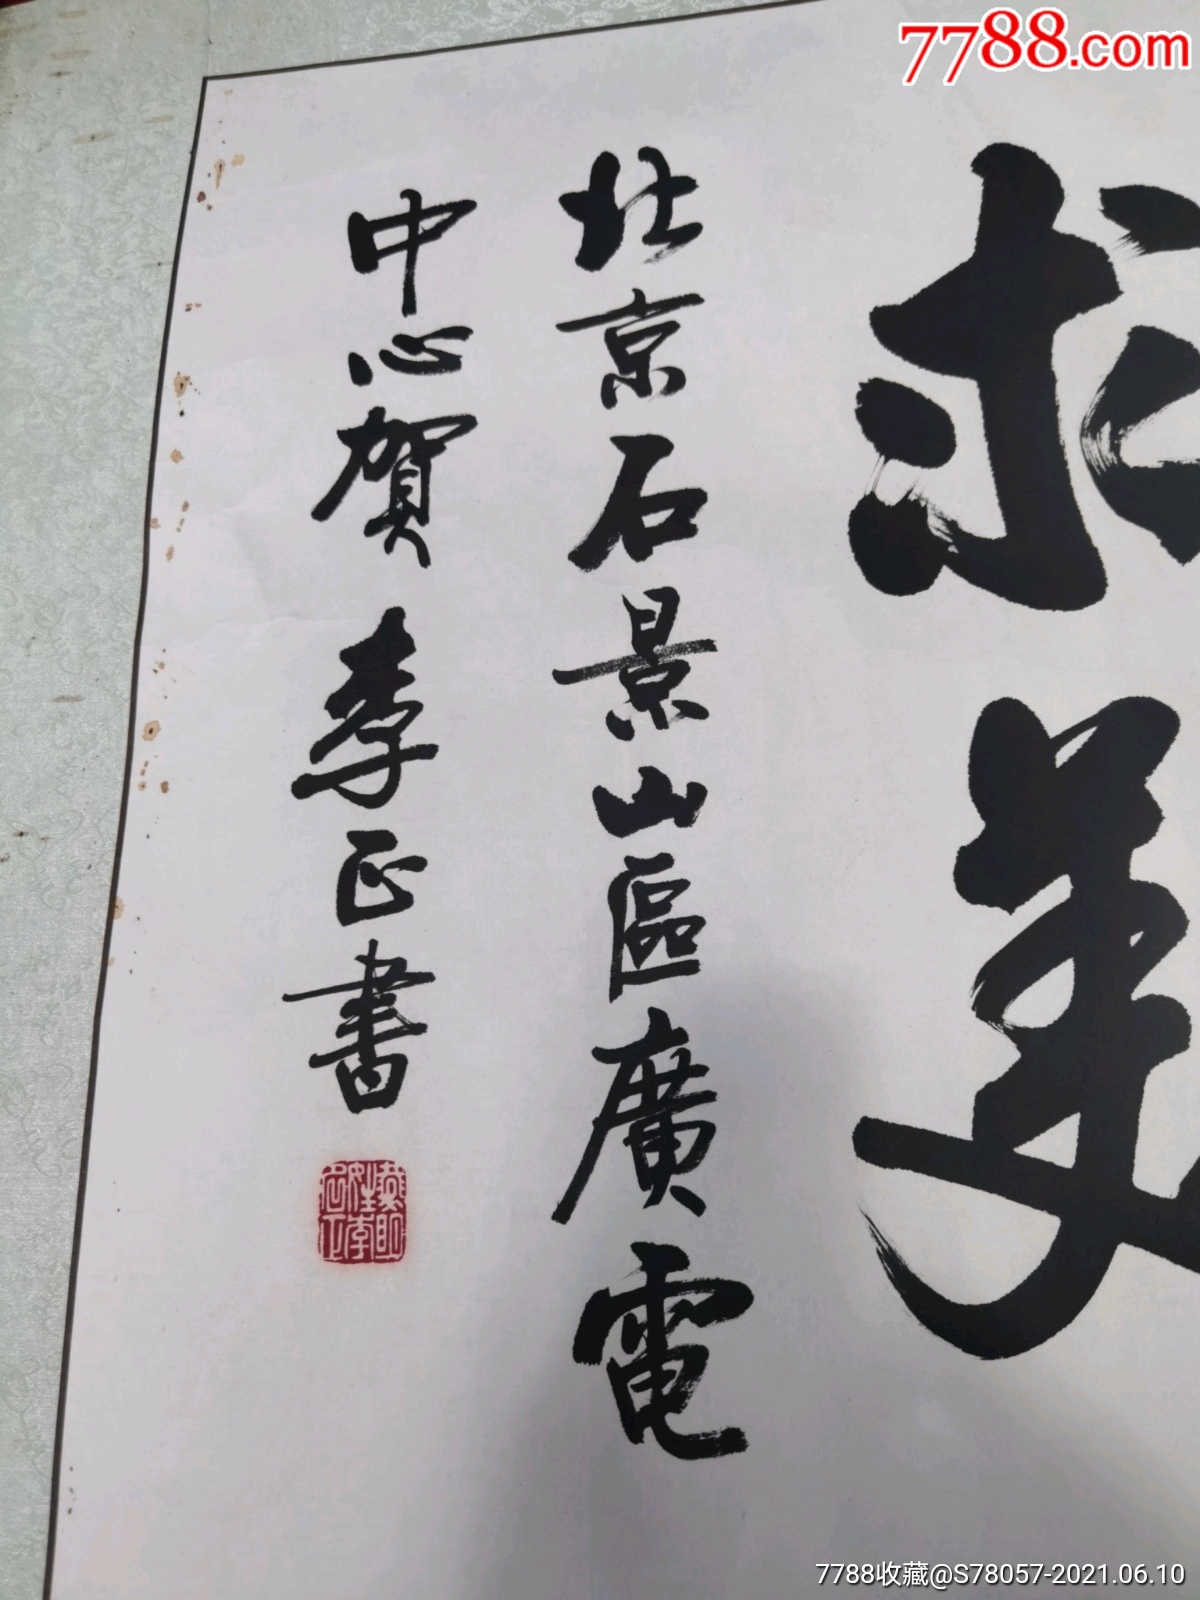 7788.com
求美
北京石景山區廣電
中心賀 李正書
7788收藏@S78057-2021.06.10